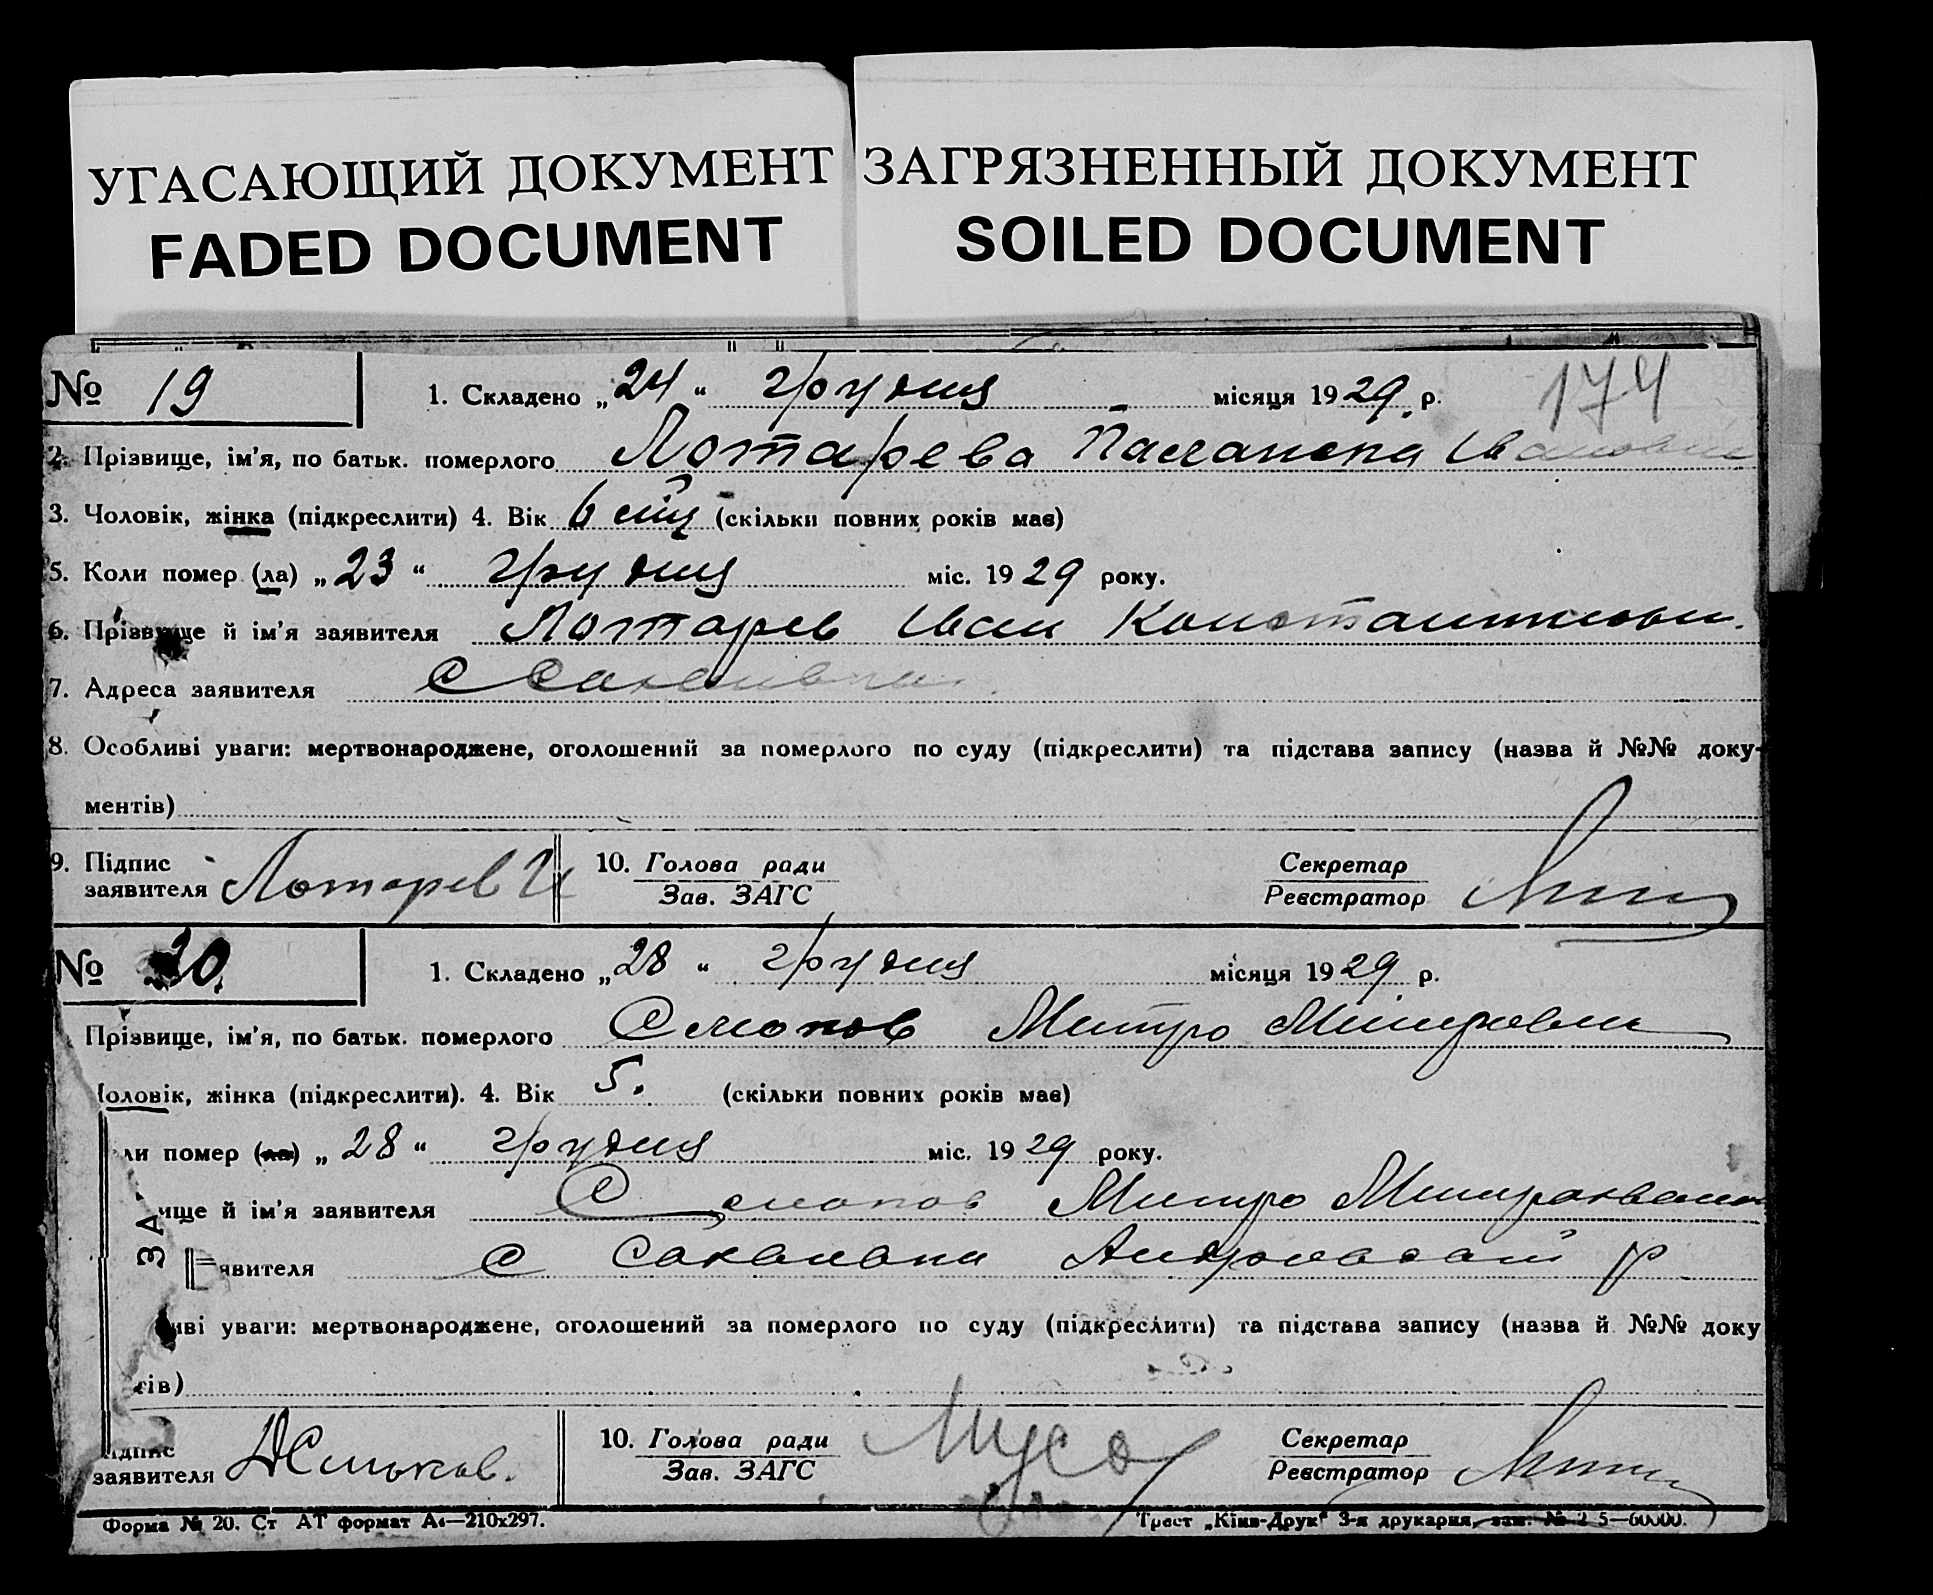 УГАСАЮЩИЙ ДОКУМЕНТ
FADED DOCUMENT
ЗАГРЯЗНЕННЫЙ ДОКУМЕНТ
SOILED DOCUMENT
174
№ 19
1. Складено „24“ грудня місяця 1929 р.
2. Прізвище, ім'я, по батьк. померлого Лотарева Ивановна
3. Чоловік, жінка (підкреслити) 4. Вік 6 (скільки повних років має)
5. Коли помер (ла) „23“ грудня міс. 1929 року.
6. Прізвище й ім'я заявителя Лотарев Иван Константинови.
7. Адреса заявителя С
8. Особливі уваги: мертвонароджене, оголошений за померлого по суду (підкреслити) та підстава запису (назва й №№ доку-
ментів)
9. Підпис
заявителя Лотарев И
10. Голова ради
Зав. ЗАГС
Секретар
Реєстратор
№ 20.
1. Складено „28“ грудня місяця 1929 р.
Прізвище, ім'я, по батьк. померлого Митро
оловік, жінка (підкреслити). 4. Вік 5. (скільки повних років має)
ли помер (ла) „28“ грудня міс. 1929 року.
ище й ім'я заявителя Митро
явителя с
ЗА
иві уваги: мертвонароджене, оголошений за померлого по суду (підкреслити) та підстава запису (назва й №№ доку
тів)
ідпис
заявителя
10. Голова ради
Зав. ЗАГС
Секретар
Реєстратор
Форма № 20. Ст АТ формат А4—210х297.
Трест „Київ-Друк“ 3-я друкарня, зам. №